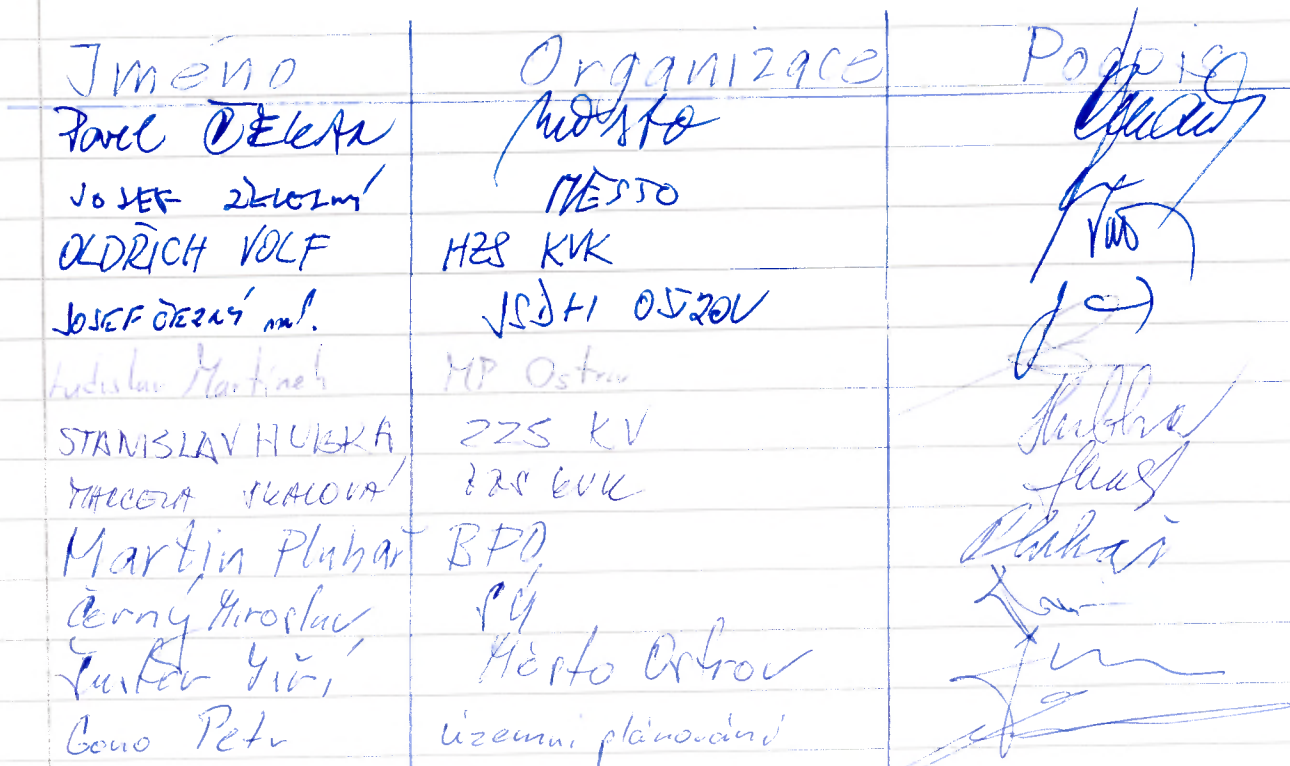 Jméno Organizace Podpis
Pavel ČEKAN Město
JOSEF ŽELEZNÝ MĚSTO
OLDŘICH VOLF HZS KVK
JOSEF ml. JSDHI OSTROV
Ladislav Martínek MP Ostrov
STANISLAV HUBKA ZZS KV Hubka
MARCELA ZZS KVK
Martin Pluhař BPO Pluhař
Černý Miroslav
Šuster Jiří Město Ostrov
Gono Petr územní plánování